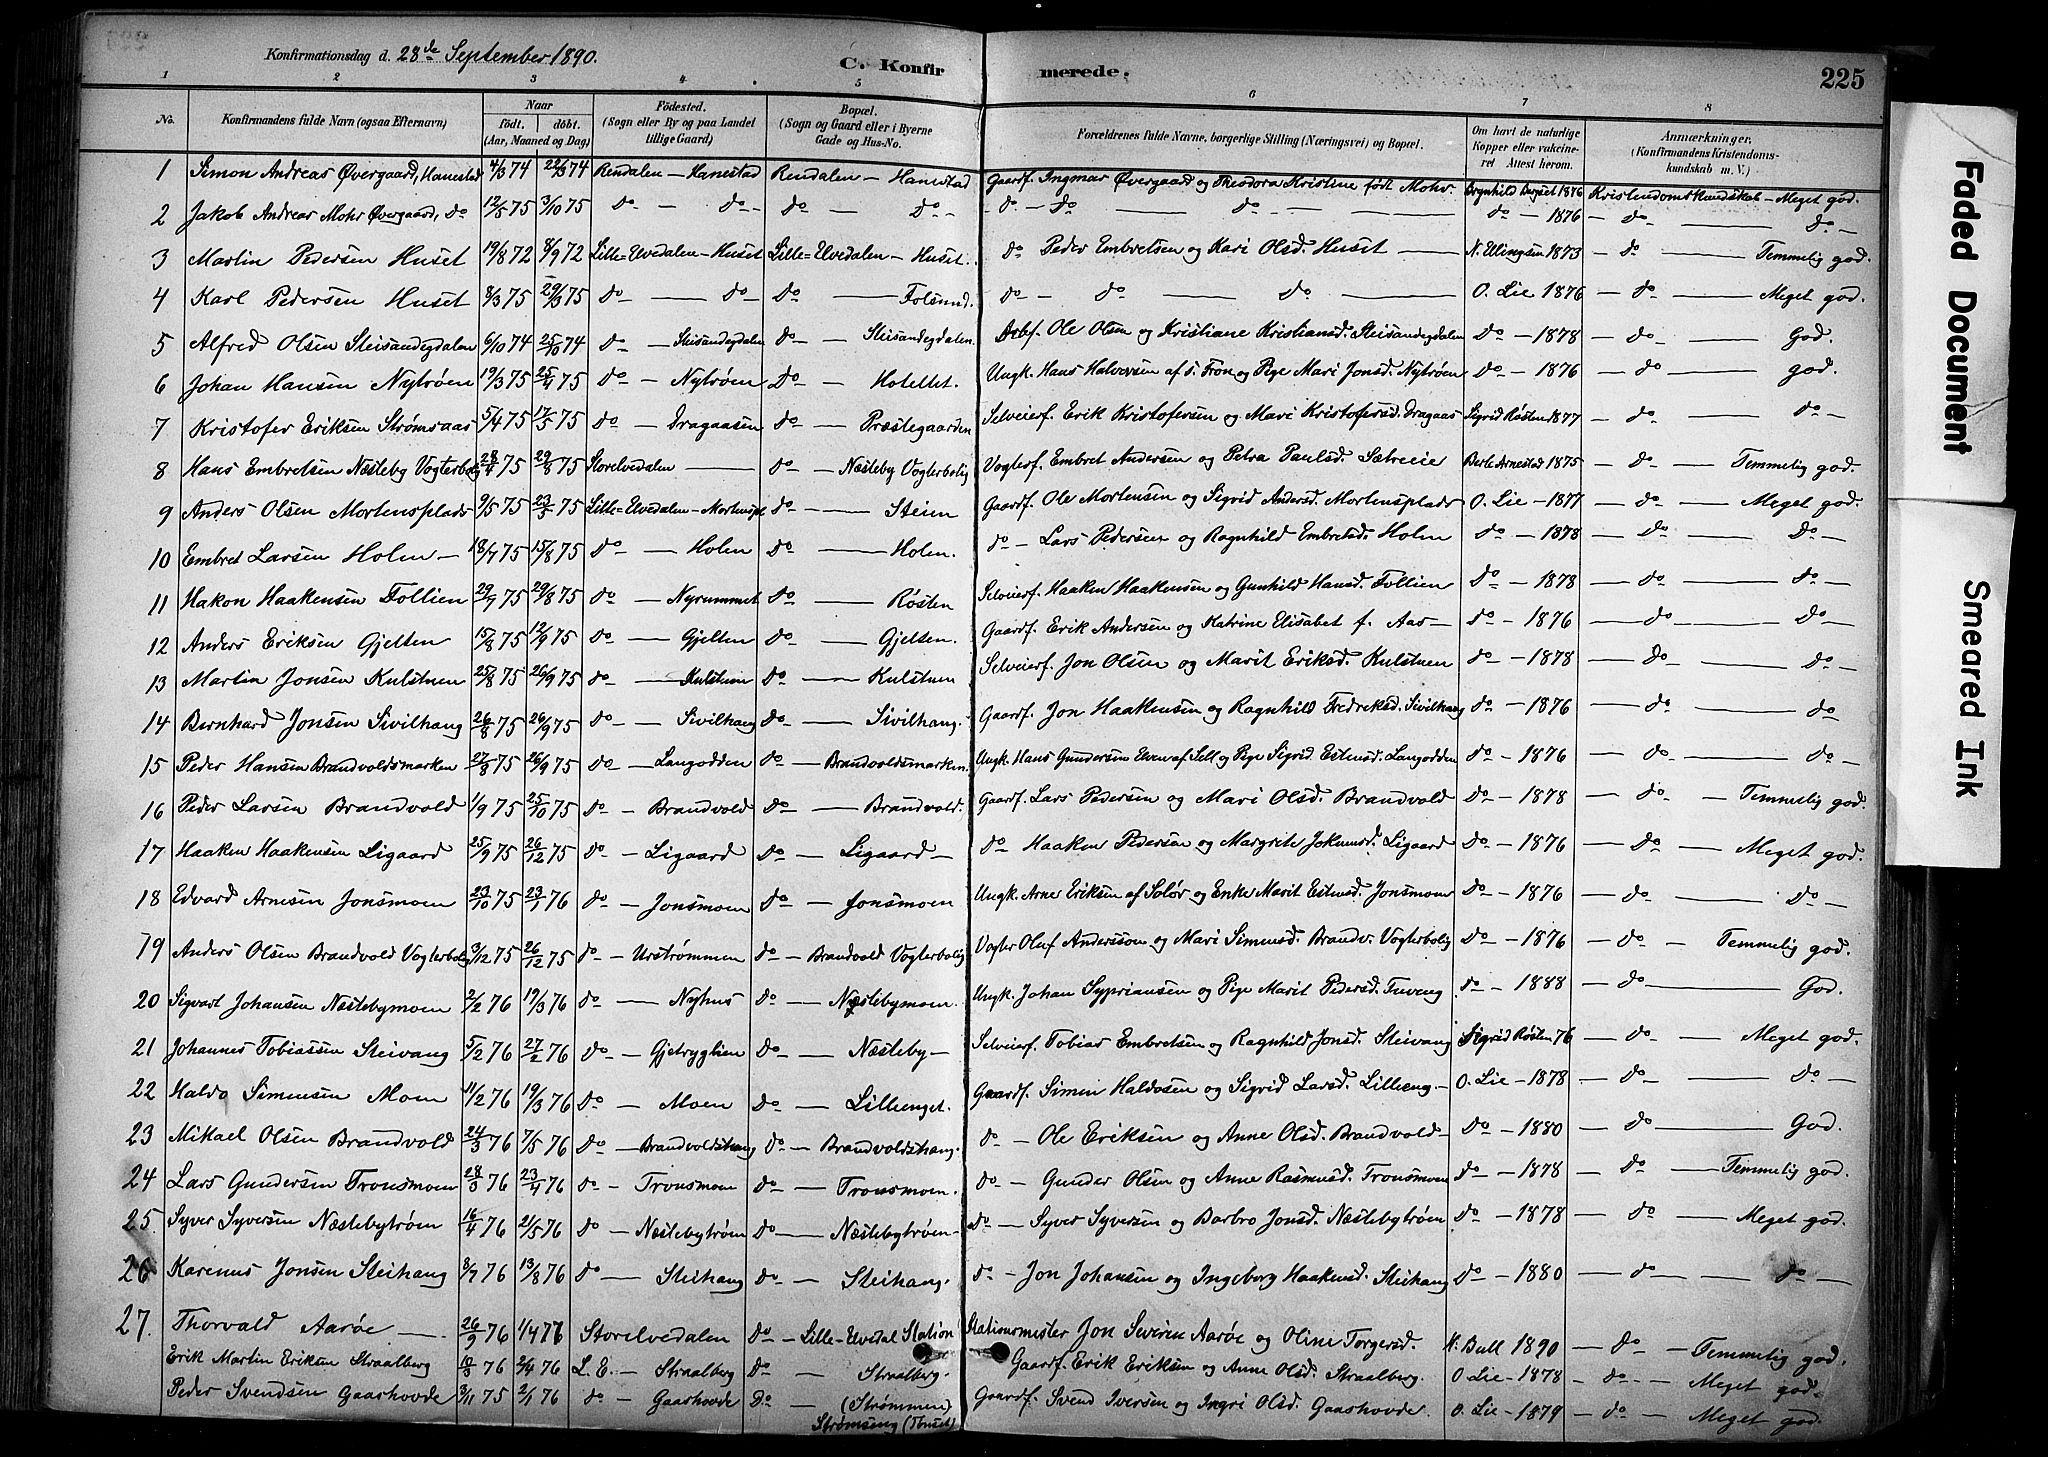 Konfirmationsdag d. 28de September 1890.
C. Konfirmerede.
225
1 2 3 4 5 6 7 8
No. Konfirmandens fulde Navn (ogsaa Efternavn) Naar födt. döbt. (Aar, Maaned og Dag) Födested. (Sogn eller By og paa Landet tillige Gaard) Bopæl. (Sogn og Gaard eller i Byerne Gade og Hus-No. Forældrenes fulde Navne, borgerlige Stilling (Næringsvei) og Bopæl. Om havt de naturlige Kopper eller vakcineret Attest herom. Anmærkninger, (Konfirmandens Kristendomskundskab m. V.)
1 Simon Andreas Øvergaard, Hanestad 4/3 74 22/3 74 Rendalen - Hanestad Rendalen - Hanestad Gaardf. Ingmar Øvergaard og Theodora Kristine født Mohr Brynhild Berset 1876 Kristendomskundskab - Meget god.
2 Jakob Andreas Mohr Øvergaard, do 12/5 75 3/10 75 do - do - do - do - do - do - do - do - 1876 - do - do -
3 Martin Pedersen Huset 19/8 72 8/9 72 Lille=Elvedalen - Huset Lille=Elvedalen - Huset. do Peder Embretsen og Kari Olsd. Huset - N. Ellingsen 1873 - do - Temmelig god.
4 Karl Pedersen Huset 8/3 75 29/3 75 do - do - do - Folsund. do - do - do - O. Lie 1876 - do - Meget god.
5 Alfred Olsen Steisandegdalen 6/10 74 25/10 74 do - Steisandegdalen do - Steisandegdalen. Arbf. Ole Olsen og Kristiane Kristiansd. Steisandegdalen do - 1878 - do - God.
6 Johan Hansen Nytrøen 19/3 75 25/4 75 do - Nytrøen Do - Hotellet. Ungk. Hans Halvorsen af S. Fron og Pige Mari Jonsd. Nytrøen do - 1876 - do - god.
7 Kristofer Eriksen Strømsaas 5/4 75 17/5 75 do - Dragaasen do - Præstegaarden Selveierf. Erik Kristofersen og Mari Kristofersd. Dragaas Sigrid Røsten 1877 - do - do -
8 Hans Embretsen Næsteby Vogterbolig 28/4 75 29/8 75 Storelvedalen - do - Næsteby Vogterbolig Vogterf. Embret Andersen og Petra Paulsd. Sætreeie Berte Arnestad 1875 - do - Temmelig god.
9 Anders Olsen Mortensplads 9/5 75 23/5 75 Lille=Elvedalen - Mortenspl. do - Steien Gaardf. Ole Mortensen og Sigrid Andersd. Mortensplads O. Lie - 1877 - do - Meget god.
10 Embret Larsen Holen - 18/7 75 15/8 75 do - Holen do - Holen. do - Lars Pedersen og Ragnhild Embretsd. Holen do - 1878 - do - do -
11 Hakon Haakensen Follien 29/7 75 29/8 75 do - Nyrummet do - Røsten Selveierf. Haaken Haakensen og Gunhild Hansd. Follien do - 1878 - do - do -
12 Anders Eriksen Gjelten 15/8 75 12/9 75 do - Gjelten do - Gjelten. Gaardf. Erik Andersen og Katrine Elisabet f. Aas - do - 1876 - do - do -
13 Martin Jonsen Kulstuen 25/8 75 26/9 75 do - Kulstuen do - Kulstuen Selveierf. Jon Olsen og Marit Eriksd. Kulstuen do - 1878 - do - do -
14 Bernhard Jonsen Sivilhaug 26/8 75 26/9 75 do - Sivilhaug do - Sivilhaug. Gaardf. Jon Haakensen og Ragnhild Fredriksd. Sivilhaug do - 1876 - do - do
15 Peder Hansen Brandvoldsmarken 27/8 75 26/9 75 do - Langodden do - Brandvoldsmarken. Ungk. Hans Gundersen Elven af Sell og Pige Sigrid Estensd. Langodden do - 1876 - do - do -
16 Peder Larsen Brandvold 1/9 75 25/10 75 do - Brandvold do - Brandvold. Gaardf. Lars Pedersen og Mari Olsd. Brandvold do - 1878 - do - Temmelig god.
17 Haaken Haakensen Ligaard 25/9 75 26/12 75 do - Ligaard do - Ligaard - do - Haaken Pedersen og Margrete Johannsd. Ligaard do - 1876 - do - Meget god.
18 Edvard Arnesen Jonsmoen 23/10 75 23/1 76 do - Jonsmoen do - Jonsmoen Ungk. Arne Eriksen af Solør og Enke Marit Estensd. Jonsmoen do - 1876 - do - do -
19 Anders Olsen Brandvold Vogterbolig 3/12 75 26/12 75 do - Urstrømmen do - Brandvold Vogterbolig Vogter Oluf Anderssen og Mari Simensd. Brandv. Vogterbolig do - 1876 - do - Temmelig god.
20 Sigvart Johansen Næstebymoen 2/2 76 19/3 76 do - Nyhus do - Næstebymoen. Ungk. Johan Sypriansen og Pige Marit Pedersd. Tuveng do - 1888 - do - God.
21 Johannes Tobiassen Steivang 5/2 76 27/2 76 do - Gjetrygglien do - Næsteby - Selveierf. Tobias Embretsen og Ragnhild Jonsd. Steivang Sigrid Røsten 76 - do - Meget god.
22 Haldo Simensen Moen 11/2 76 19/3 76 do - Moen do - Lillenget. Gaardf. Simen Haldosen og Sigrid Larsd. Lilleeng - O. Lie - 1878 - do - do -
23 Mikael Olsen Brandvold 24/3 76 7/5 76 do - Brandvoldshaug do - Brandvoldshaug. do - Ole Eriksen og Anne Olsd. Brandvold - do - 1880 - do - God.
24 Lars Gundersen Tronsmoen 28/3 76 23/4 76 do - Tronsmoen do - Tronsmoen. do - Gunder Olsen og Anne Rasmusd. Tronsmoen do - 1878 - do - Temmelig god.
25 Syver Syversen Næstebytrøen 16/4 76 21/5 76 do - Næstebytrøen do - Næstebytrøen - do - Syver Syversen og Barbro Jonsd. Næstebytrøen do - 1878 - do - Meget god.
26 Karenus Jonsen Steihaug 8/7 76 13/8 76 do - Steihaug do - Steihaug. do - Jon Johansen og Ingeborg Haakensd. Steihaug do - 1880 - do - do -
27. Thorvald Aarøe - 26/9 76 1/4 77 Storelvedalen do - Lille-Elvedal Station Stationsmester Jon Severin Aarøe og Oline Torgersd. K. Bull 1890 - do - Temmelig god.
Erik Martin Eriksen Straalberg 12/3 76 2/4 76 L. E. - Straalberg do - Straalberg. Gaardf. Erik Eriksen og Anne Olsd. Straalberg. O Lie - 1878 - do - Meget god.
Peder Svendsen Gaashovde 3/11 75 2/1 76 do - Gaashovde Do - (Strømmen) Gaardf. Svend Iversen og Ingri Olsd. Gaashovde. O. Lie - 1879 - do - Meget god.
Strømseng (Thuset)
Faded Document
Smeared Ink